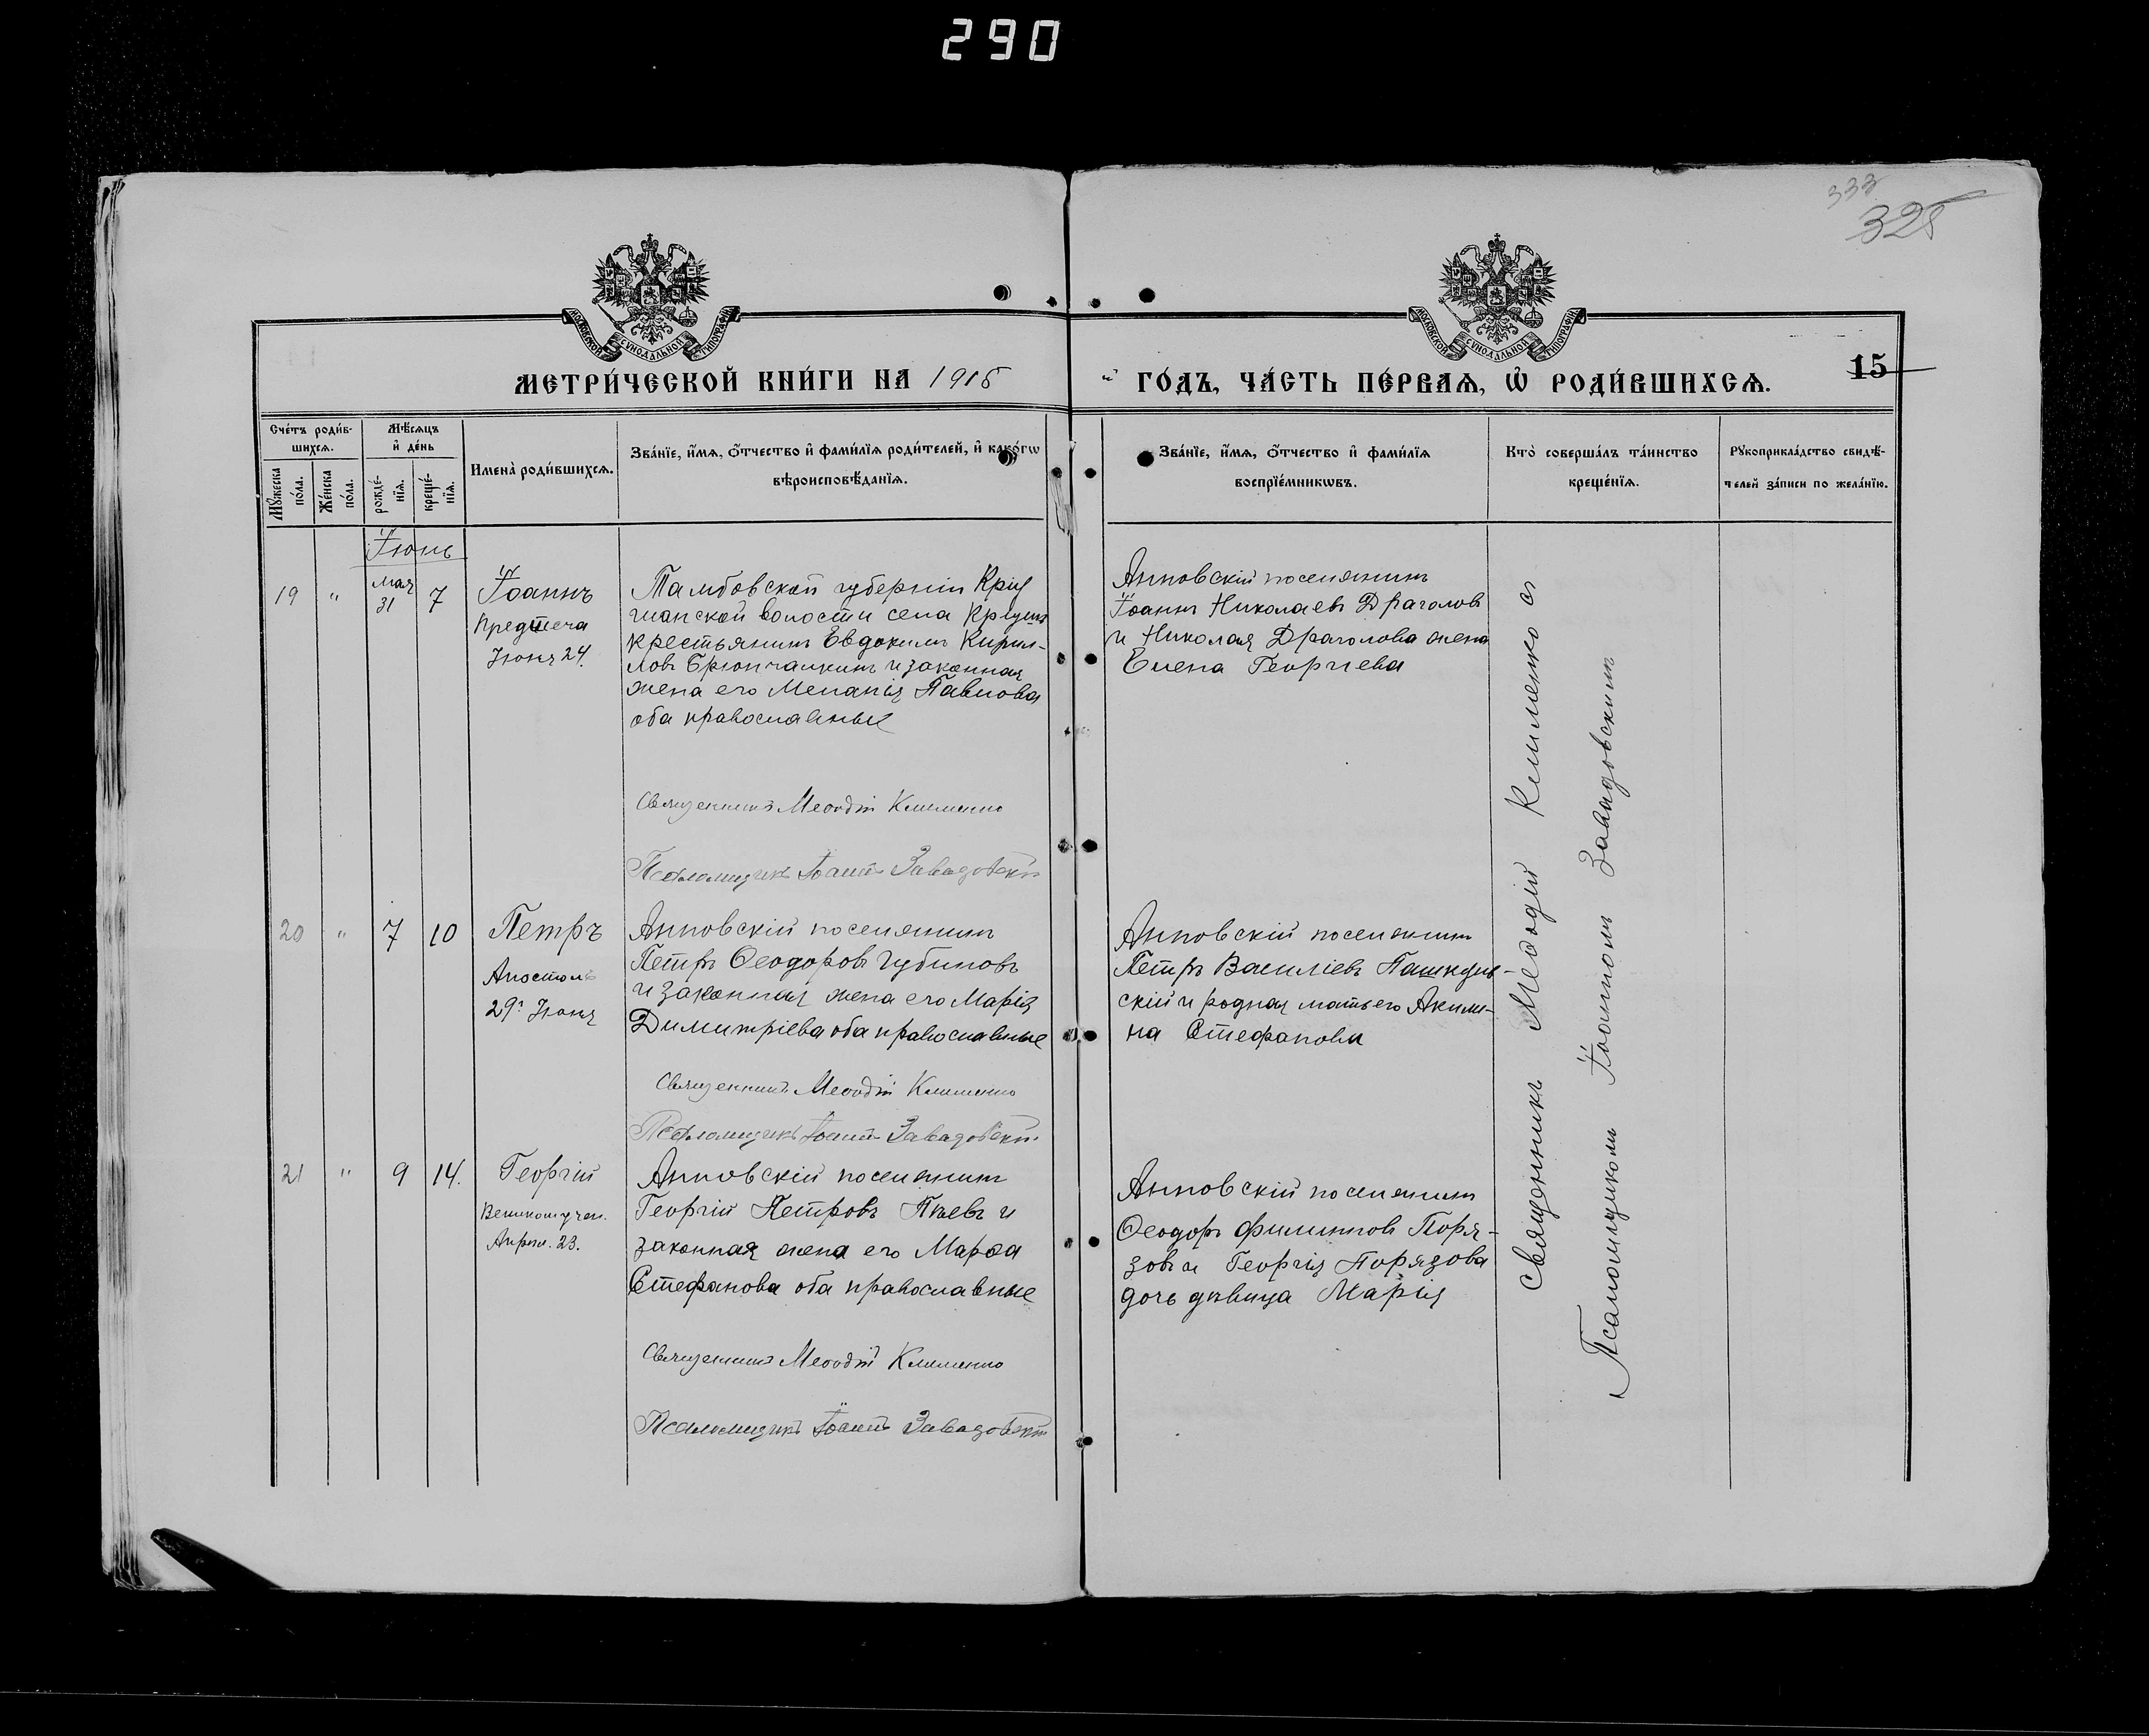 290
333
325
МОСКОВСКОЙ СѴНОДАЛЬНОЙ ТИПОГРАФІИ
МОСКОВСКОЙ СѴНОДАЛЬНОЙ ТИПОГРАФІИ
МЕТРИ́ЧЕСКОЙ КНИ́ГИ НА 1916
й ГО́ДЪ, ЧА́СТЬ ПЕ́РВАѦ, Ѡ҆ РОДИ́ВШИХСѦ.
15
Сче́тъ роди́в-
шихсѧ.
Мꙋ́жеска по́ла.
Же́нска по́ла.
Мѣ́сѧцъ
и҆ де́нь
рожде́-
нїѧ.
креще́-
нїѧ.
Имена̀ роди́вшихсѧ.
Зва́нїе, и҆́мѧ, ѻ҆́тчество и҆ фами́лїѧ роди́телей, и҆ како́гѡ
вѣроисповѣ́данїѧ.
Зва́нїе, и҆́мѧ, ѻ҆́тчество и҆ фами́лїѧ
воспрїе́мникѡвъ.
Кто̀ соверша́лъ та́инство
креще́нїѧ.
Рꙋкоприкла́дство свидѣ́-
телей за́писи по жела́нїю.
Іюнь
19 " мая 31 7
Іоаннъ
Предтеча
Іюня 24.
Тамбовской губерніи
волости села
крестьянинъ Евдокимъ Кирил-
ловъ и законная
жена его Меланія Павлова
оба православные
Священникъ Меѳодій Клименко
Псаломщикъ Іоаннъ Завадовскій
Анновскій поселянинъ
Іоаннъ Николаевъ Драголовъ
и Николая Драголова жена
Елена Георгіева
20 " 7 10
Петръ
Апостолъ
29. Іюня
Анновскій поселянинъ
Петръ Ѳеодоровъ Чубиновъ
и законная жена его Марія
Димитріева оба православные
Священникъ Меѳодій Клименко
Псаломщикъ Іоаннъ Завадовскій
Анновскій поселянинъ
Петръ Василіевъ
скій и родная мать его Акили-
на Стефанова
21 " 9 14.
Георгій
Великомучен.
Апрѣл. 23.
Анновскій поселянинъ
Георгій Петровъ и
законная жена его Марѳа
Стефанова оба православные
Священникъ Меѳодій Клименко
Псаломщикъ Іоаннъ Завадовскій
Анновскій поселянинъ
Ѳеодоръ Филипповъ Поря-
зовъ и Георгія Порязова
дочь дѣвица Марія
Священникъ Меѳодій Клименко съ
Псаломщикомъ Іоанномъ Завадовскимъ